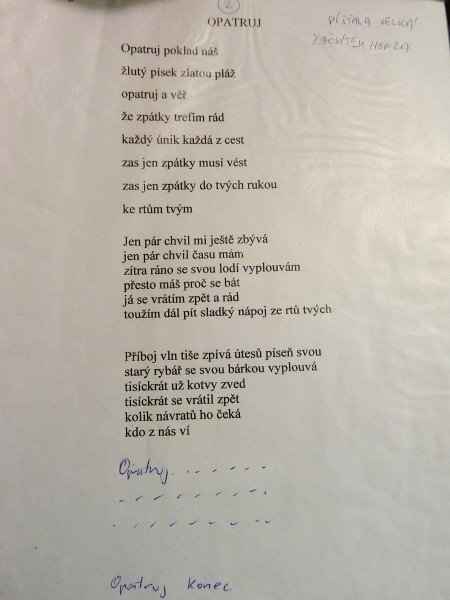 2
OPATRUJ
PÍŠŤALA VELKÁ
ZAČÁTEK HONZA
Opatruj poklad náš
žlutý písek zlatou pláž
opatruj a věř
že zpátky trefím rád
každý únik každá z cest
zas jen zpátky musí vést
zas jen zpátky do tvých rukou
ke rtům tvým
Jen pár chvil mi ještě zbývá
jen pár chvil času mám
zítra ráno se svou lodí vyplouvám
přesto máš proč se bát
já se vrátím zpět a rád
toužím dál pít sladký nápoj ze rtů tvých
Příboj vln tiše zpívá útesů píseň svou
starý rybář se svou bárkou vyplouvá
tisíckrát už kotvy zved
tisíckrát se vrátil zpět
kolik návratů ho čeká
kdo z nás ví
Opatruj.......
Opatruj Konec